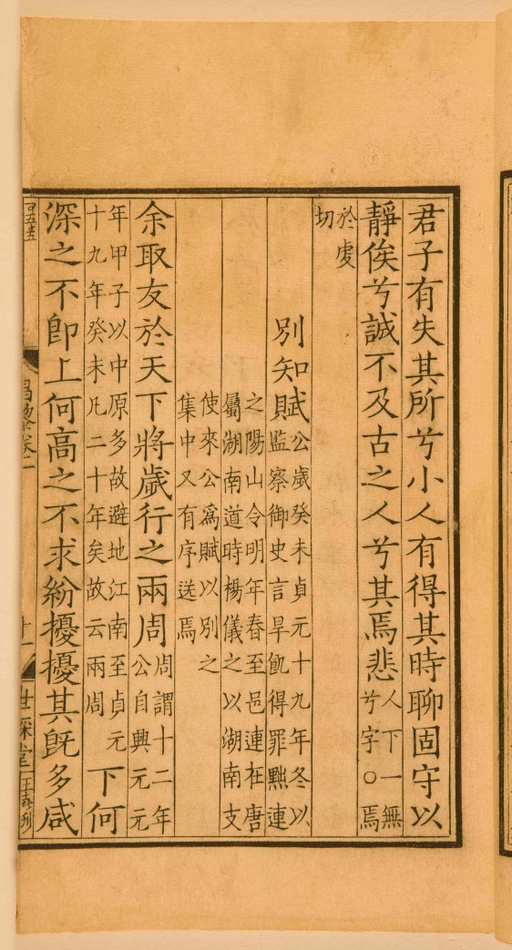 君子有失其所兮小人有得其時聊固守以
靜俟兮誠不及古之人兮其焉悲人下一無兮字○焉
於虔切
別知賦公歲癸未貞元十九年冬以監察御史言旱飢得罪黜連
之陽山令明年春至邑連在唐屬湖南道時楊儀之以湖南支
使來公爲賦以別之集中又有序送焉
余取友於天下將歲行之兩周周謂十二年公自興元元
年甲子以中原多故避地江南至貞元十九年癸未凡二十年矣故云兩周下何
深之不卽上何高之不求紛擾擾其旣多咸
十一
世綵堂